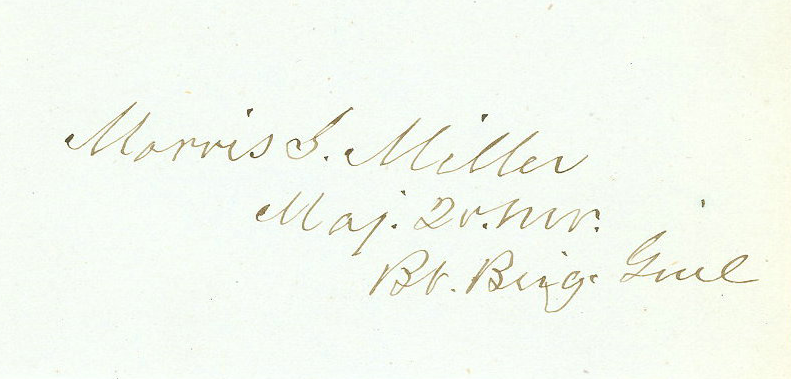 Morris S. Miller
Maj. Qr. Mr.
Bt. Brig. Genl